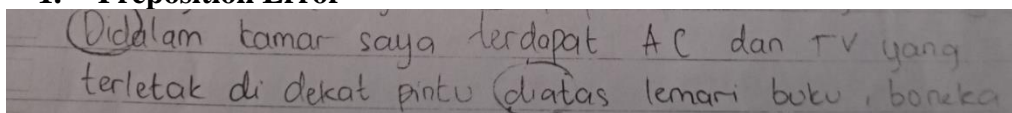 1. Preposition Error
Didalam kamar saya terdapat AC dan TV yang
terletak di dekat pintu diatas lemari buku, boneka